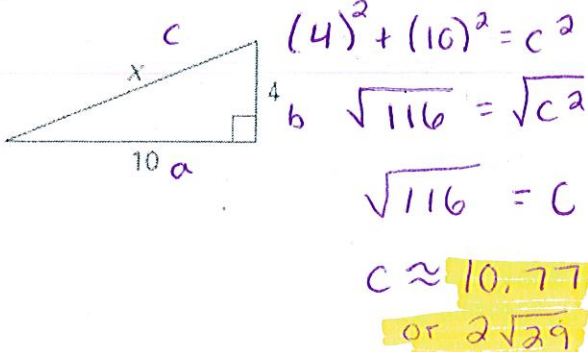 c
x
4
b
10 a
(4)² + (10)² = c²
√116 = √c²
√116 = c
c ≈ 10.77
or 2√29